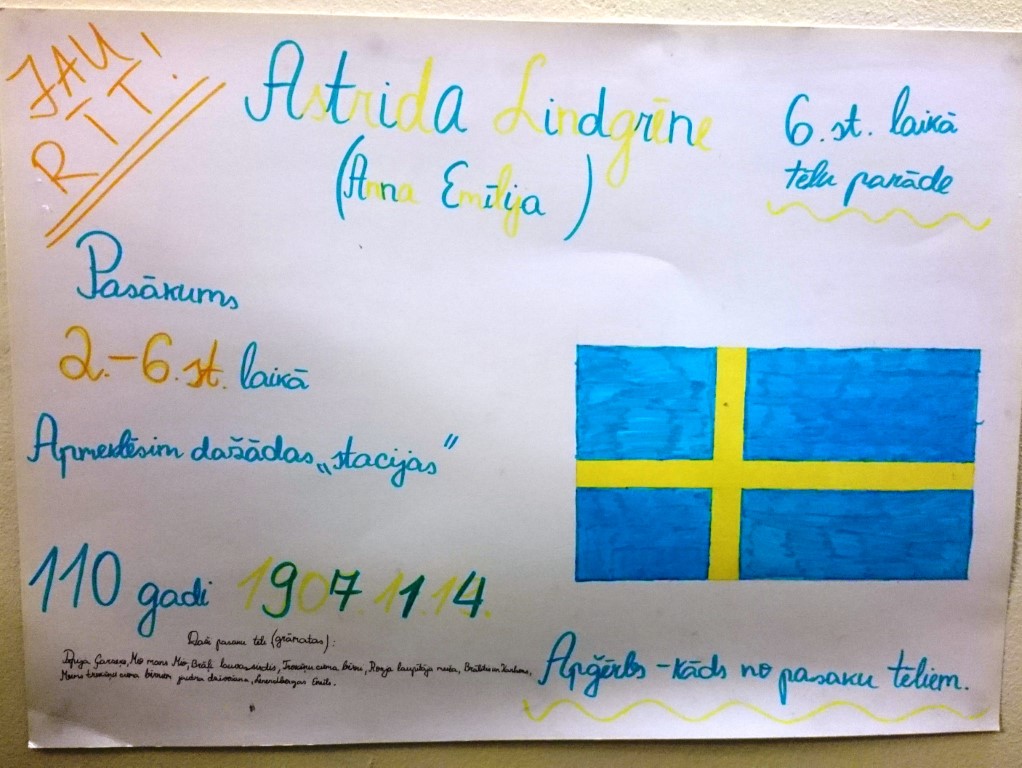 JAU
RĪT!
Astrida Lindgrēne
(Anna Emīlija)
6. st. laikā
tēlu parāde
Pasākums
2.-6. st. laikā
Apmeklēsim dažādas „stacijas"
110 gadi 1907.11.14.
Daži pasaku tēli (grāmatas):
Pepija Garzeķe, Mio mans Mio, Brāļi Lauvassirdis, Trokšņu ciema bērni, Ronja laupītāja meita, Brālītis un Karlsons,
Mums trokšņu ciema bērniem jautra dzīvošana, Lennebergas Emīls.
Apģērbs - kāds no pasaku tēliem.